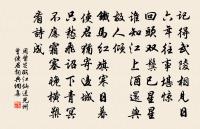 記得武陵相見日
六年往事堪驚
回頭雙鬢已星星
誰知江上酒還與
故人傾
鐵馬紅旗寒日暮
使君猶寄邊城
只愁飛詔下青冥
不應霜塞晚橫槊
看詩成
周紫芝臨江仙送光州
曾使君詞典網集